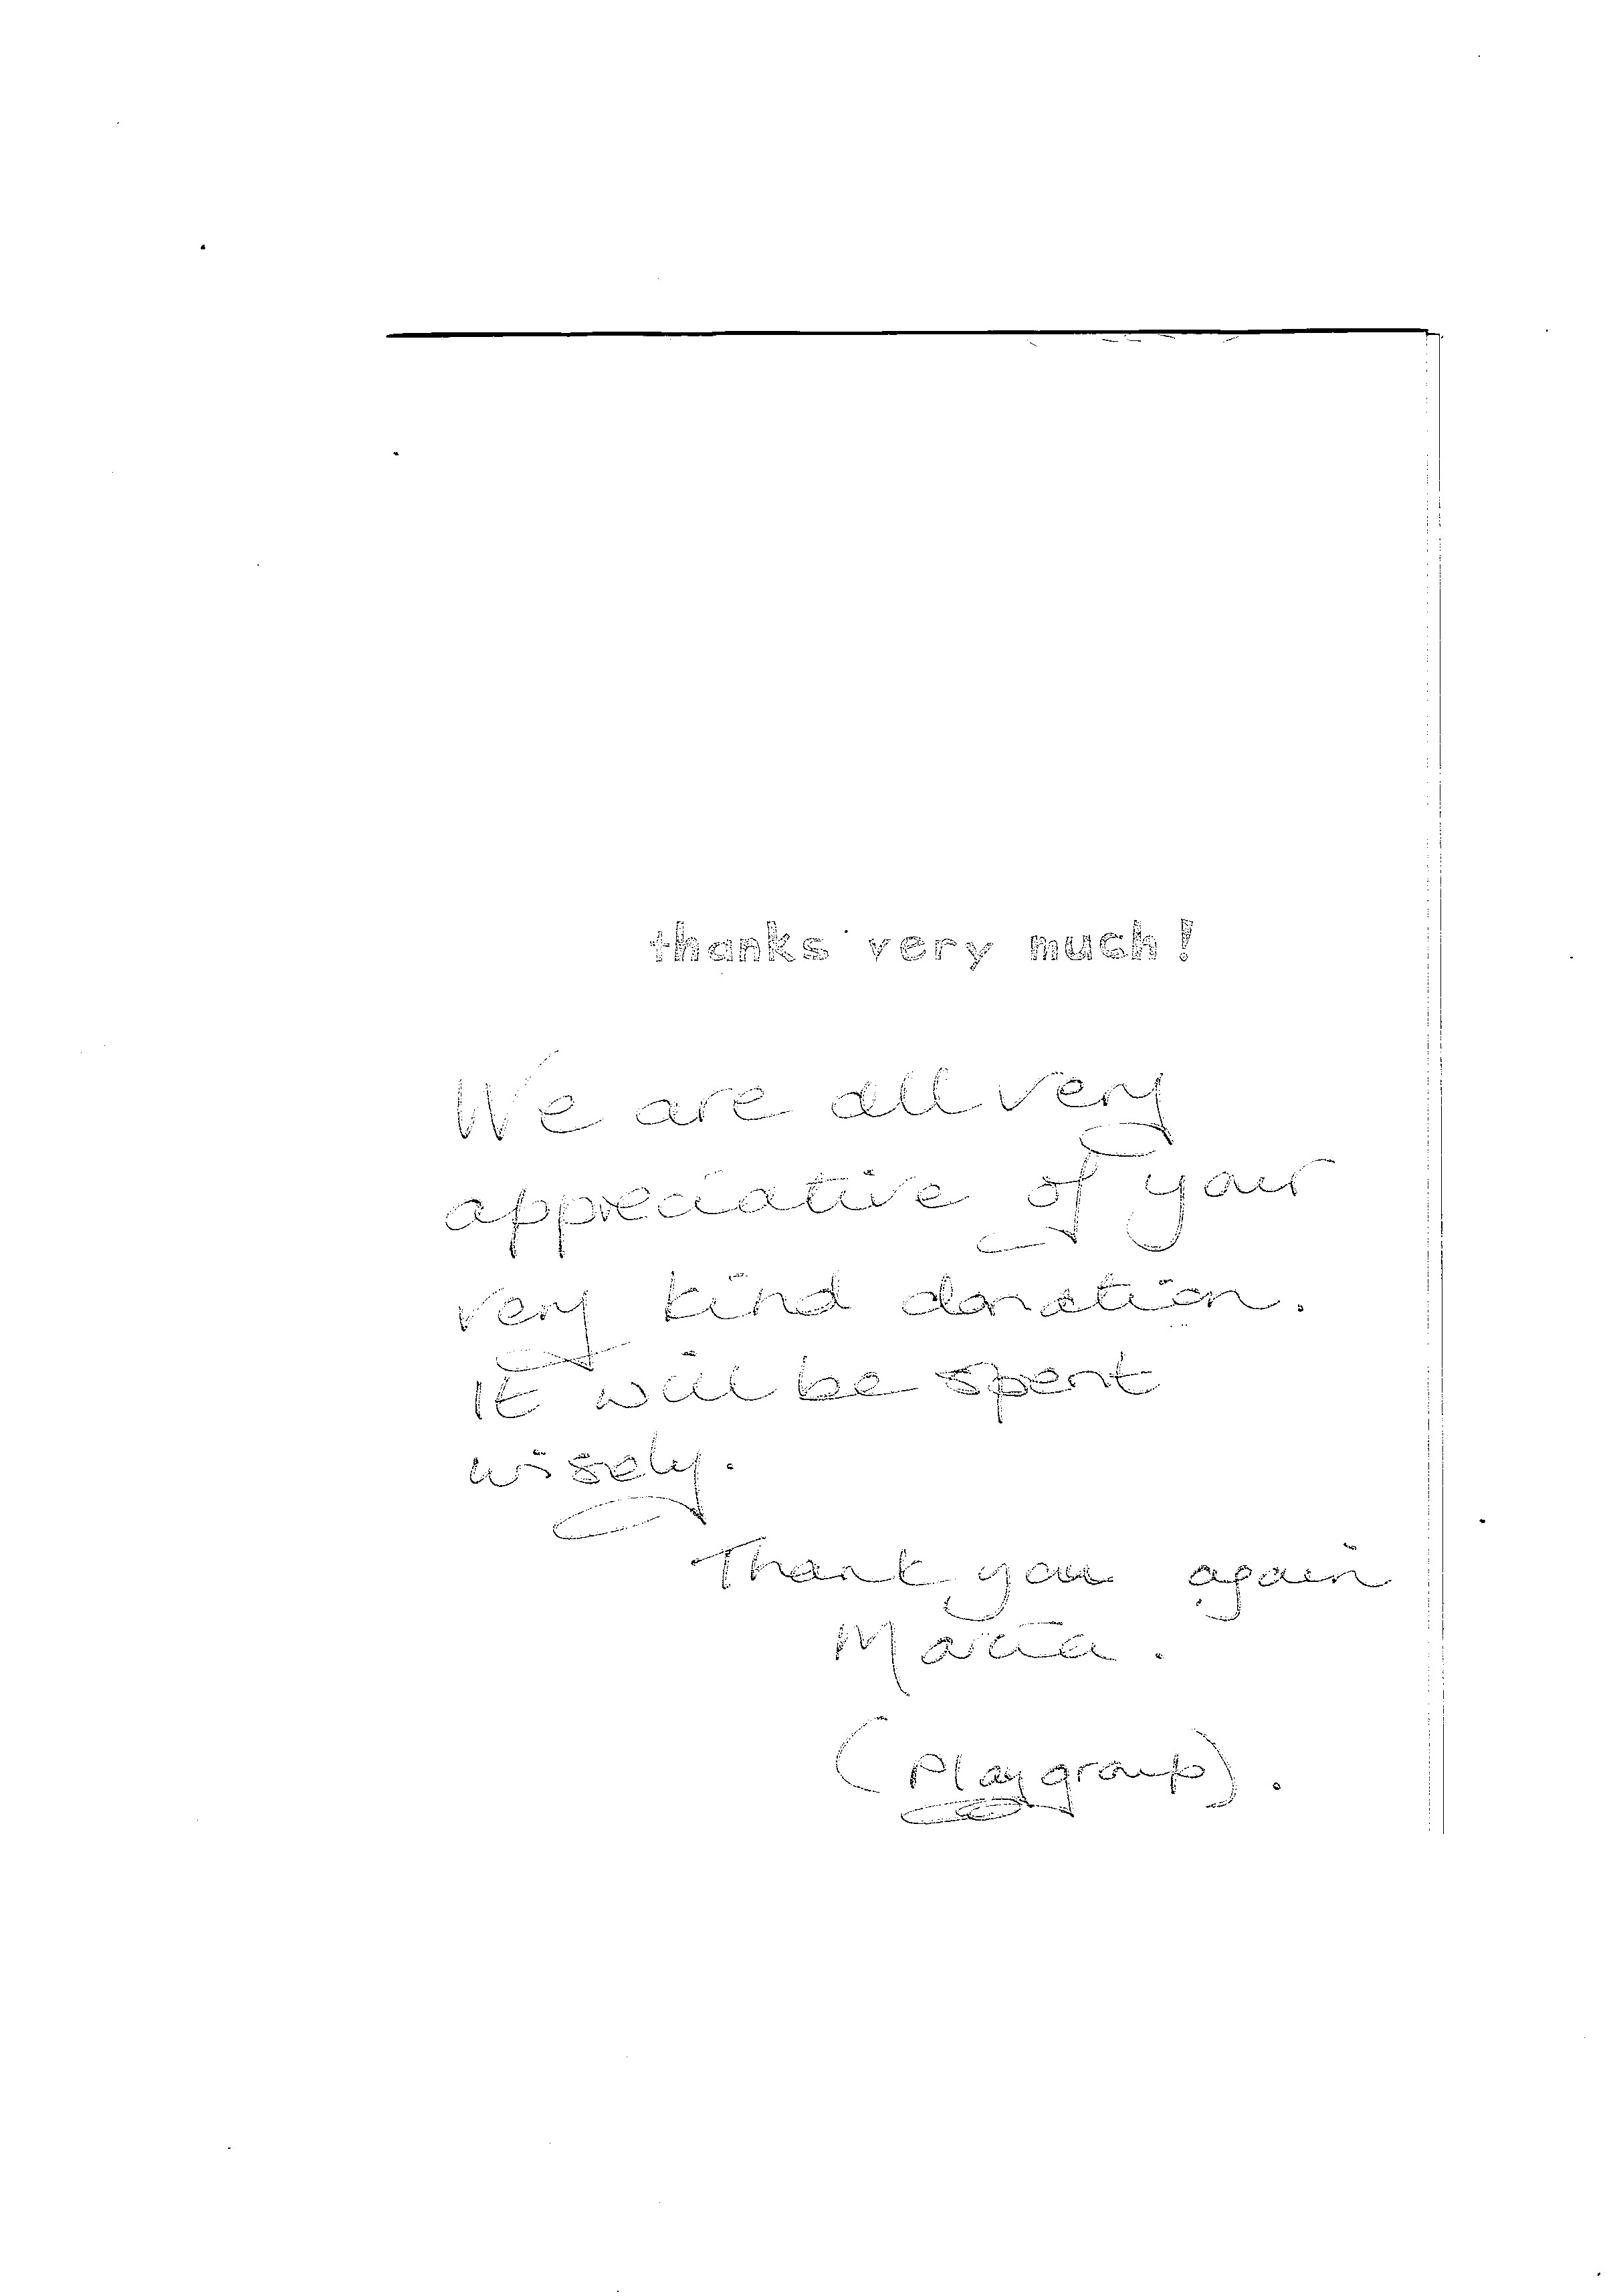 thanks very much!
We are all very
appreciative of your
very kind donation.
It will be spent
wisely.
Thank you again
Maria.
(Playgroup).